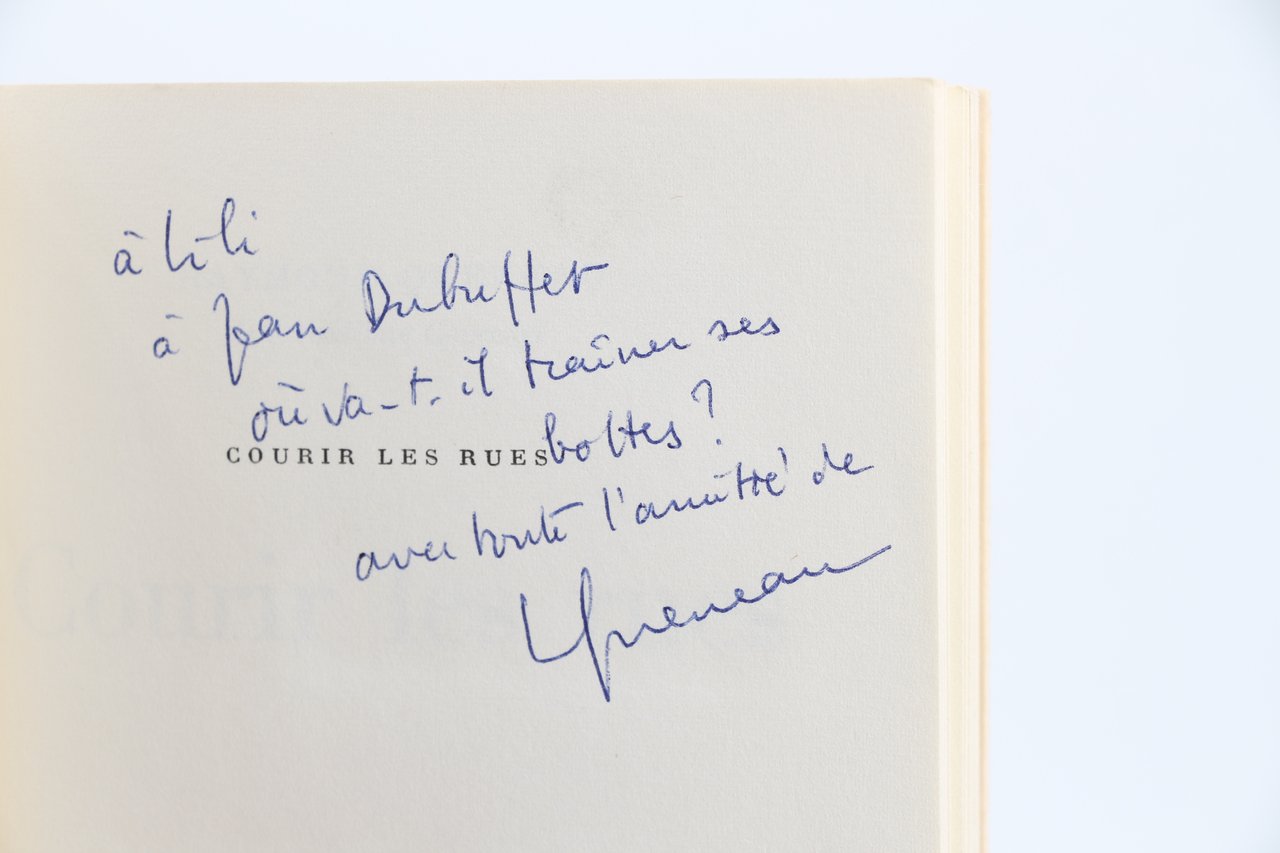 à Lili
à Jean Dubuffet
où va-t-il traîner ses
bottes ?
COURIR LES RUES
avec toute l'amitié de
Queneau